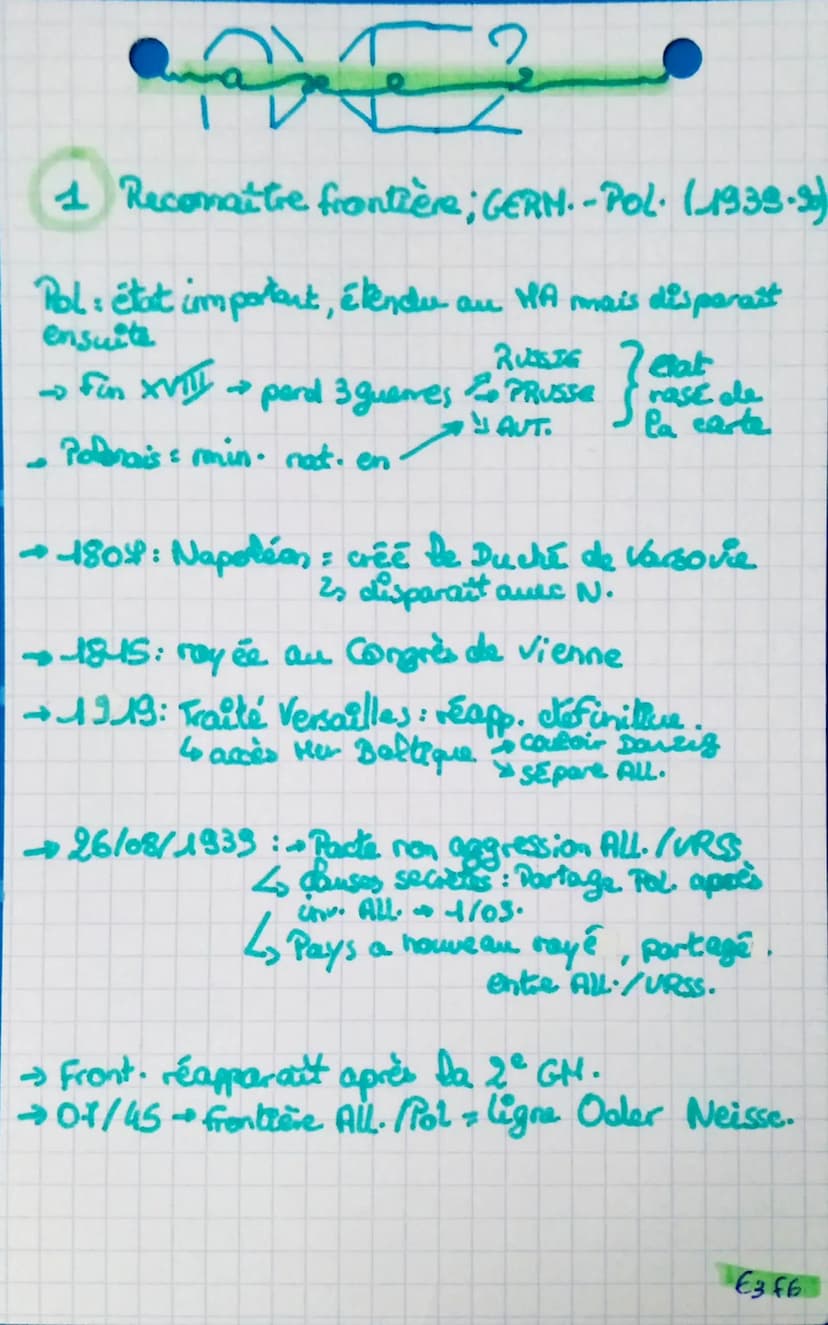 1 Reconnaître frontière; GERM.-POL. (1939-90)
Pol: état important, étendu au MA mais disparaît
ensuite
→ fin XVIII → perd 3 guerres → RUSSIE → PRUSSE → AUT. } état rasé de la carte
→ Polonais = min. nat. en
→ 1807: Napoléon = créé le Duché de Varsovie
↳ disparaît avec N.
→ 1815: rayée au Congrès de Vienne
→ 1919: Traité Versailles: réapp. définitive.
↳ accès Mer Baltique → couloir Danzig
↘ sépare ALL.
→ 26/08/1939: → Pacte non aggression ALL./URSS
↳ clauses secrètes: Partage Pol. après
inv. ALL. → 1/09.
↳ Pays a nouveau rayé, partagé
entre ALL./URSS.
→ Front. réapparaît après la 2e GM.
→ 07/45 → frontière All./Pol = ligne Oder Neisse.
E3 F6